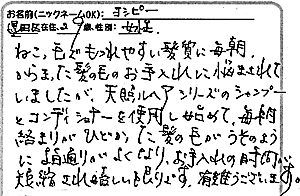 お名前(ニックネームOK): ヨンピー
墨田区在住、2 歳、性別: 女性
ねこっ毛でもつれやすい髪質に毎朝
からまった髪の毛のお手入れに悩まされて
いましたが、天照ルヘアシリーズのシャンプー
とコンディショナーを使用し始めて、毎朝
絡まりがひどかった髪の毛がうそのよう
に、指通りがよくなり、お手入れの時間
短縮され嬉しい限りです。有難うございます。